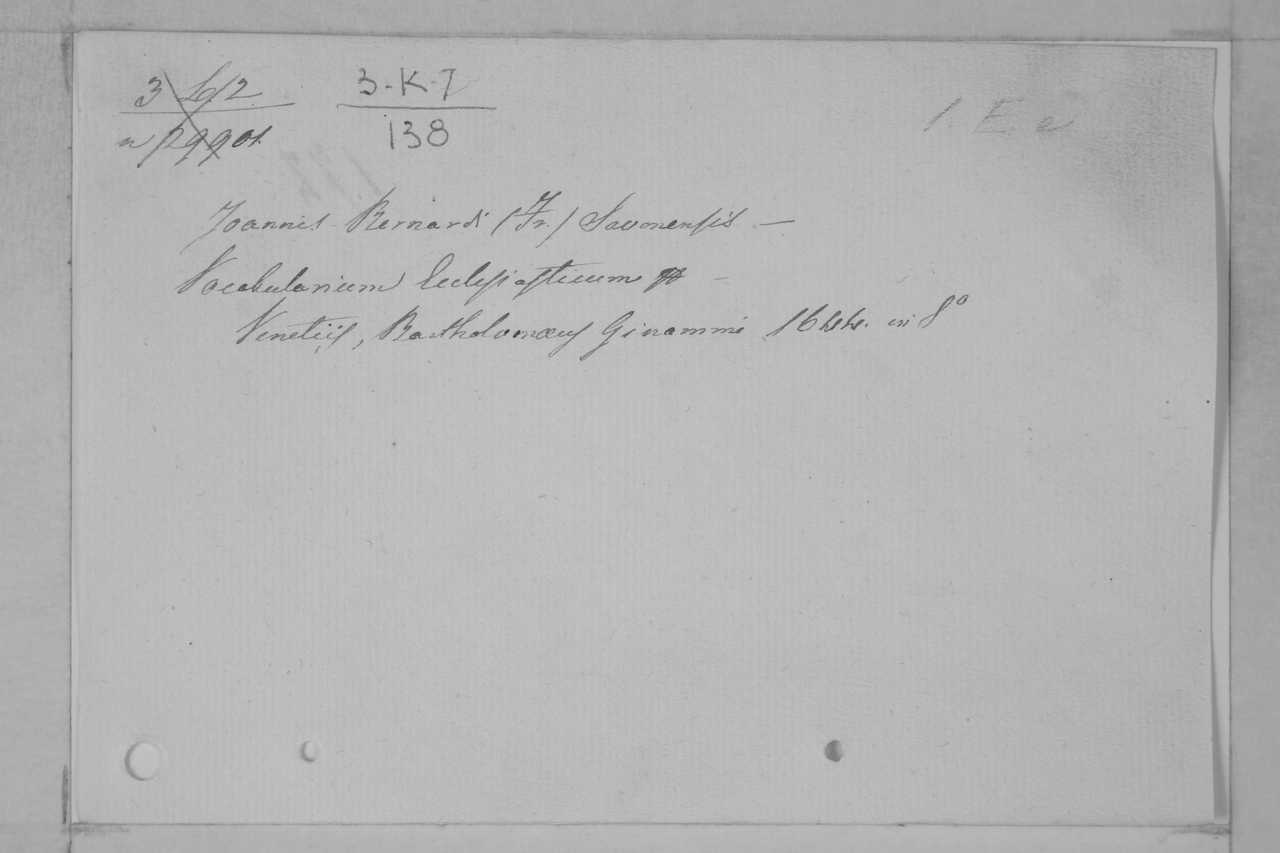 3 L/2
n 12990t.
3-K-7
138
1 E e
Joannis Bernardi (Fr.) Savonensis —
Vocabularium Ecclesiasticum —
Venetiis, Bartholomæus Ginammi 16 in 8º